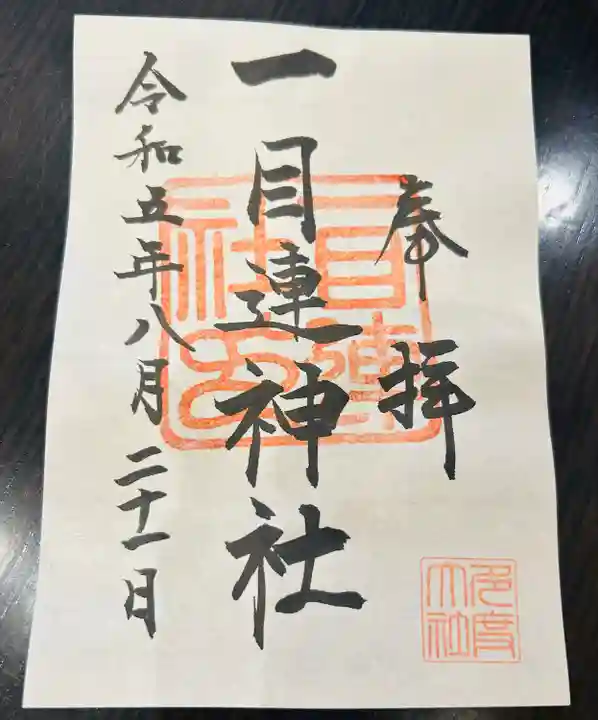 奉拝
一目連神社
令和五年八月二十一日
多度
大社